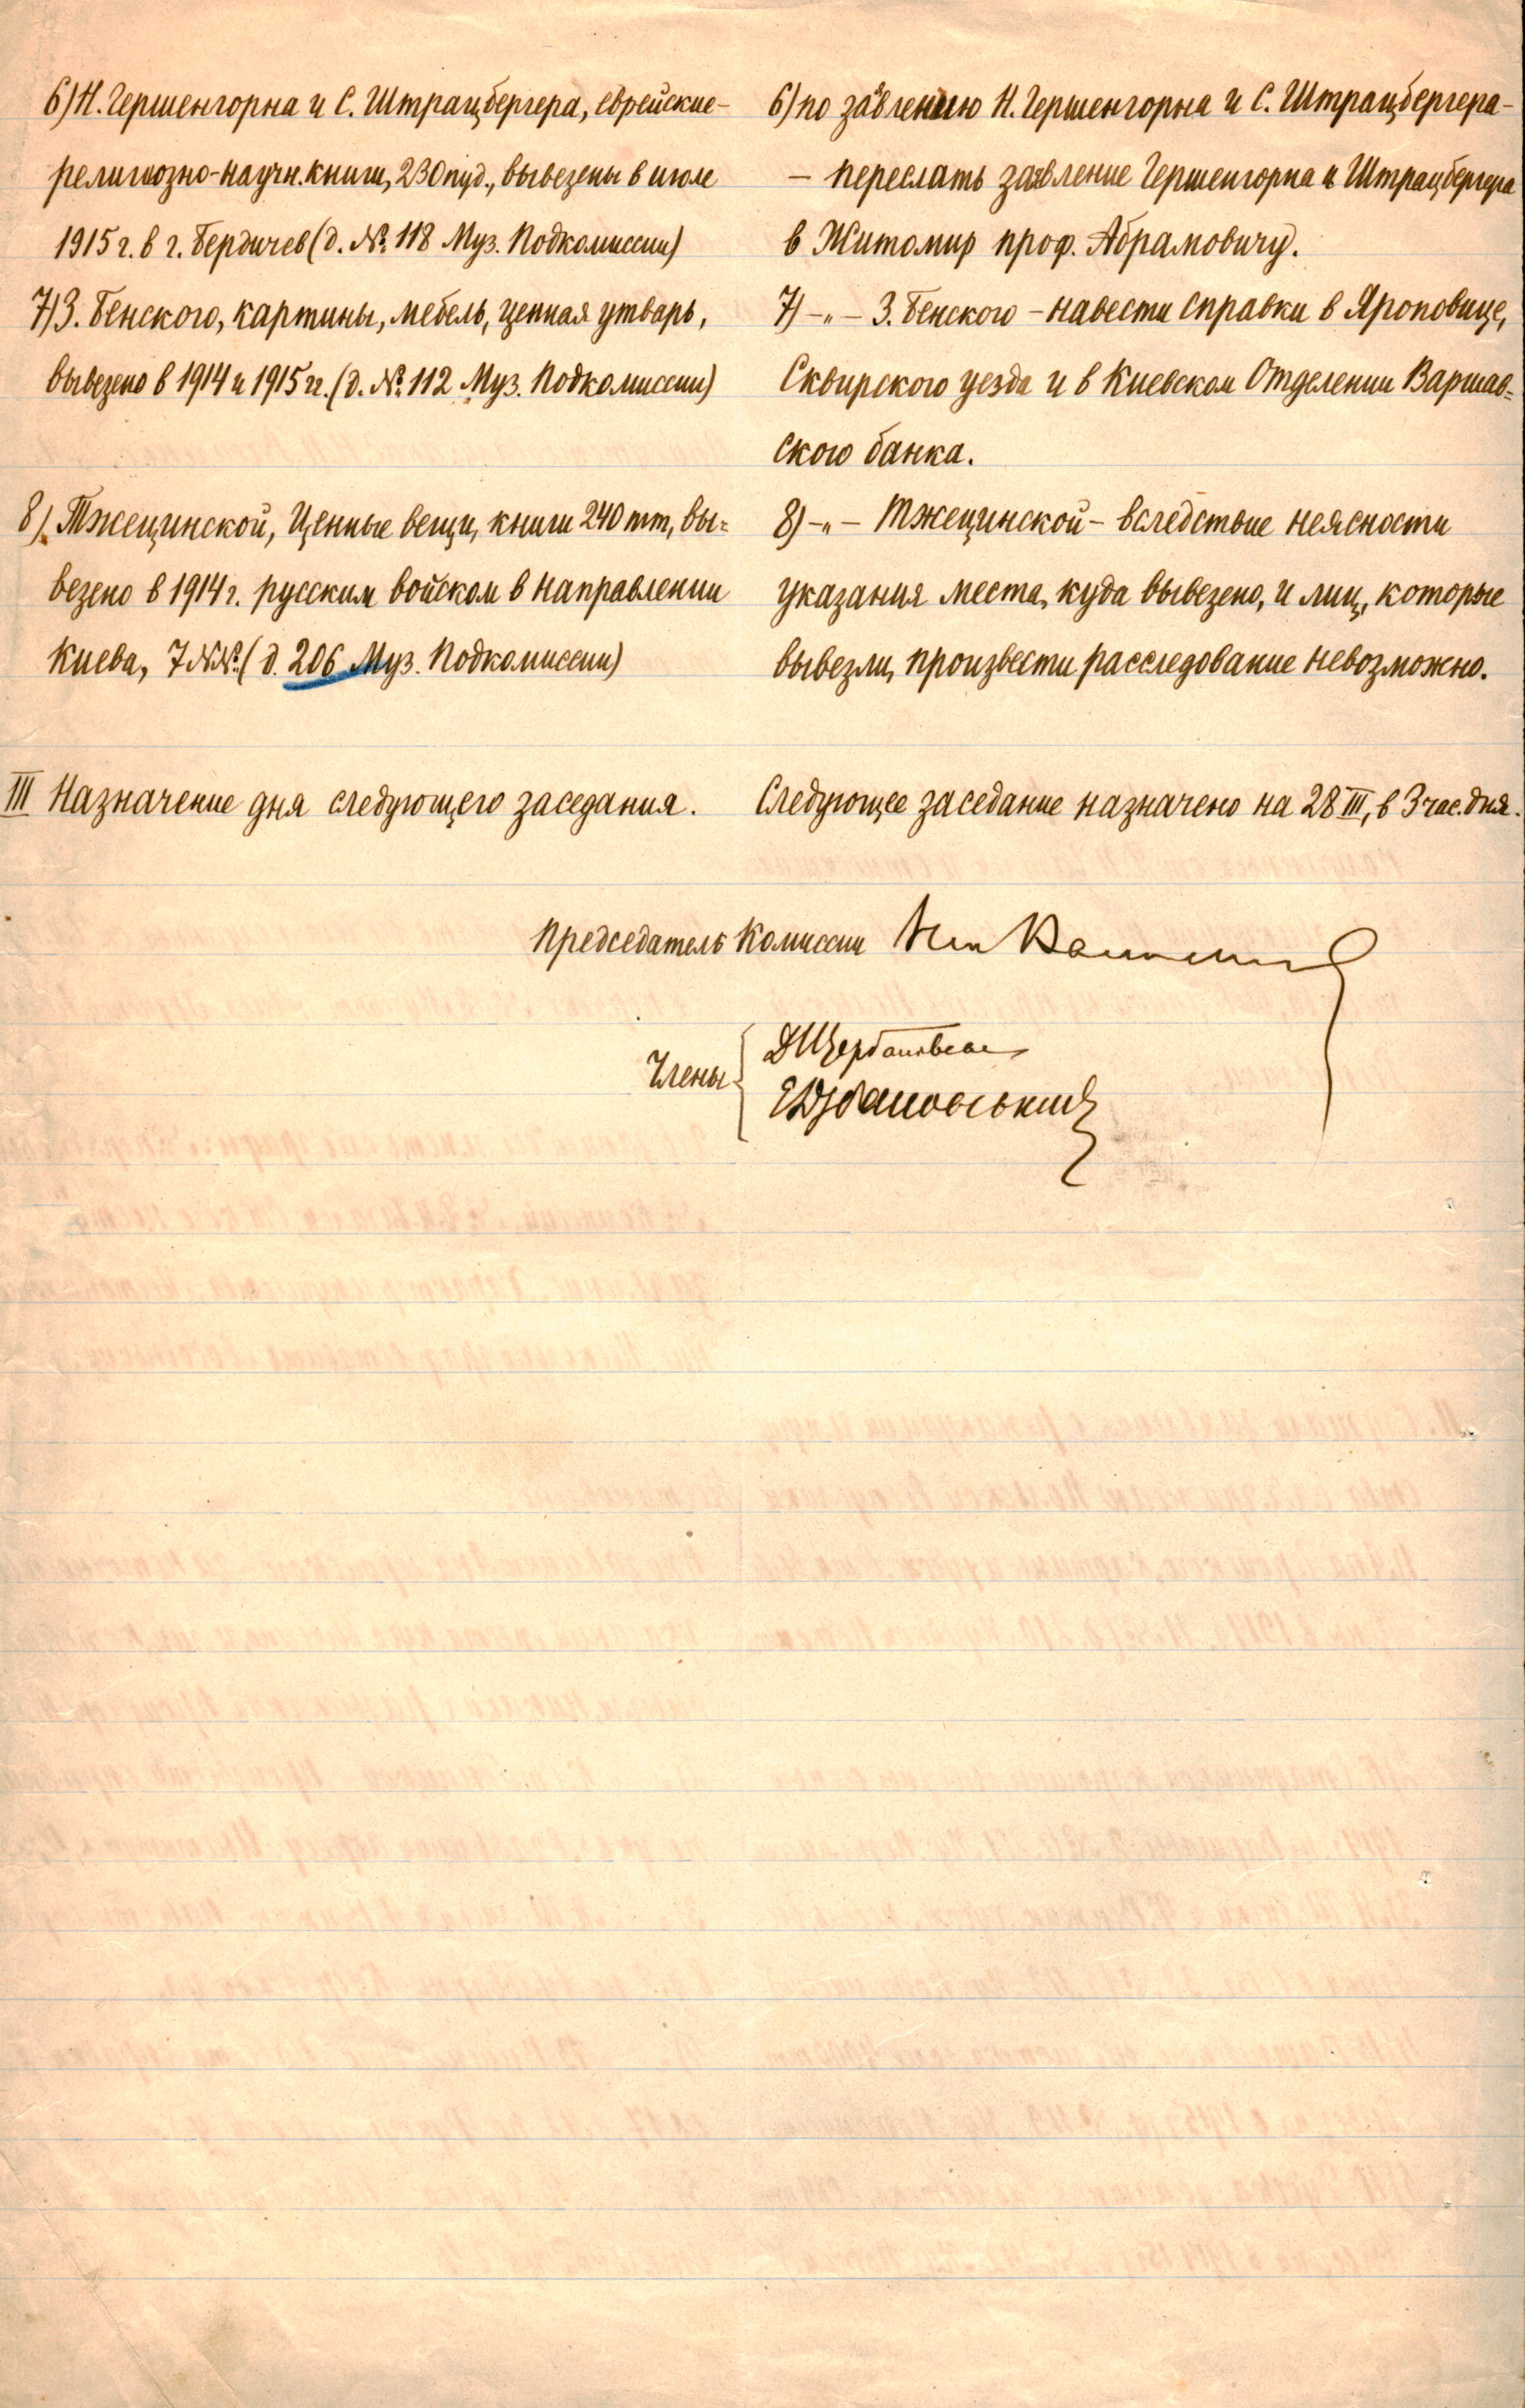 6) Н. Гершенгорна и С. Штрацбергера, еврейские-
религиозно-научн. книги, 230 пуд., вывезены в июле
1915 г. в г. Бердичев (д. № 118 Муз. Подкомиссии)
7) З. Бенского, картины, мебель, ценная утварь,
вывезено в 1914 и 1915 гг. (д. № 112 Муз. Подкомиссии)
8) Тжецинской, Ценные вещи, книги 240 тт, вы=
везено в 1914 г. русским войском в направлении
Киева, 7 №№ (д. 206 Муз. Подкомиссии)
III Назначение дня следующего заседания.
6) по заявлению Н. Гершенгорна и С. Штрацбергера-
– переслать заявление Гершенгорна и Штрацбергера
в Житомир проф. Абрамовичу.
7) -„- З. Бенского – навести справки в Яроповице,
Сквирского уезда и в Киевском Отделении Варшав=
ского банка.
8) -„- Тжецинской – вследствие неясности
указания места, куда вывезено, и лиц, которые
вывезли, произвести расследование невозможно.
Следующее заседание назначено на 28 III, в 3 час. дня.
Председатель Комиссии
Члены
ДЩербаковск